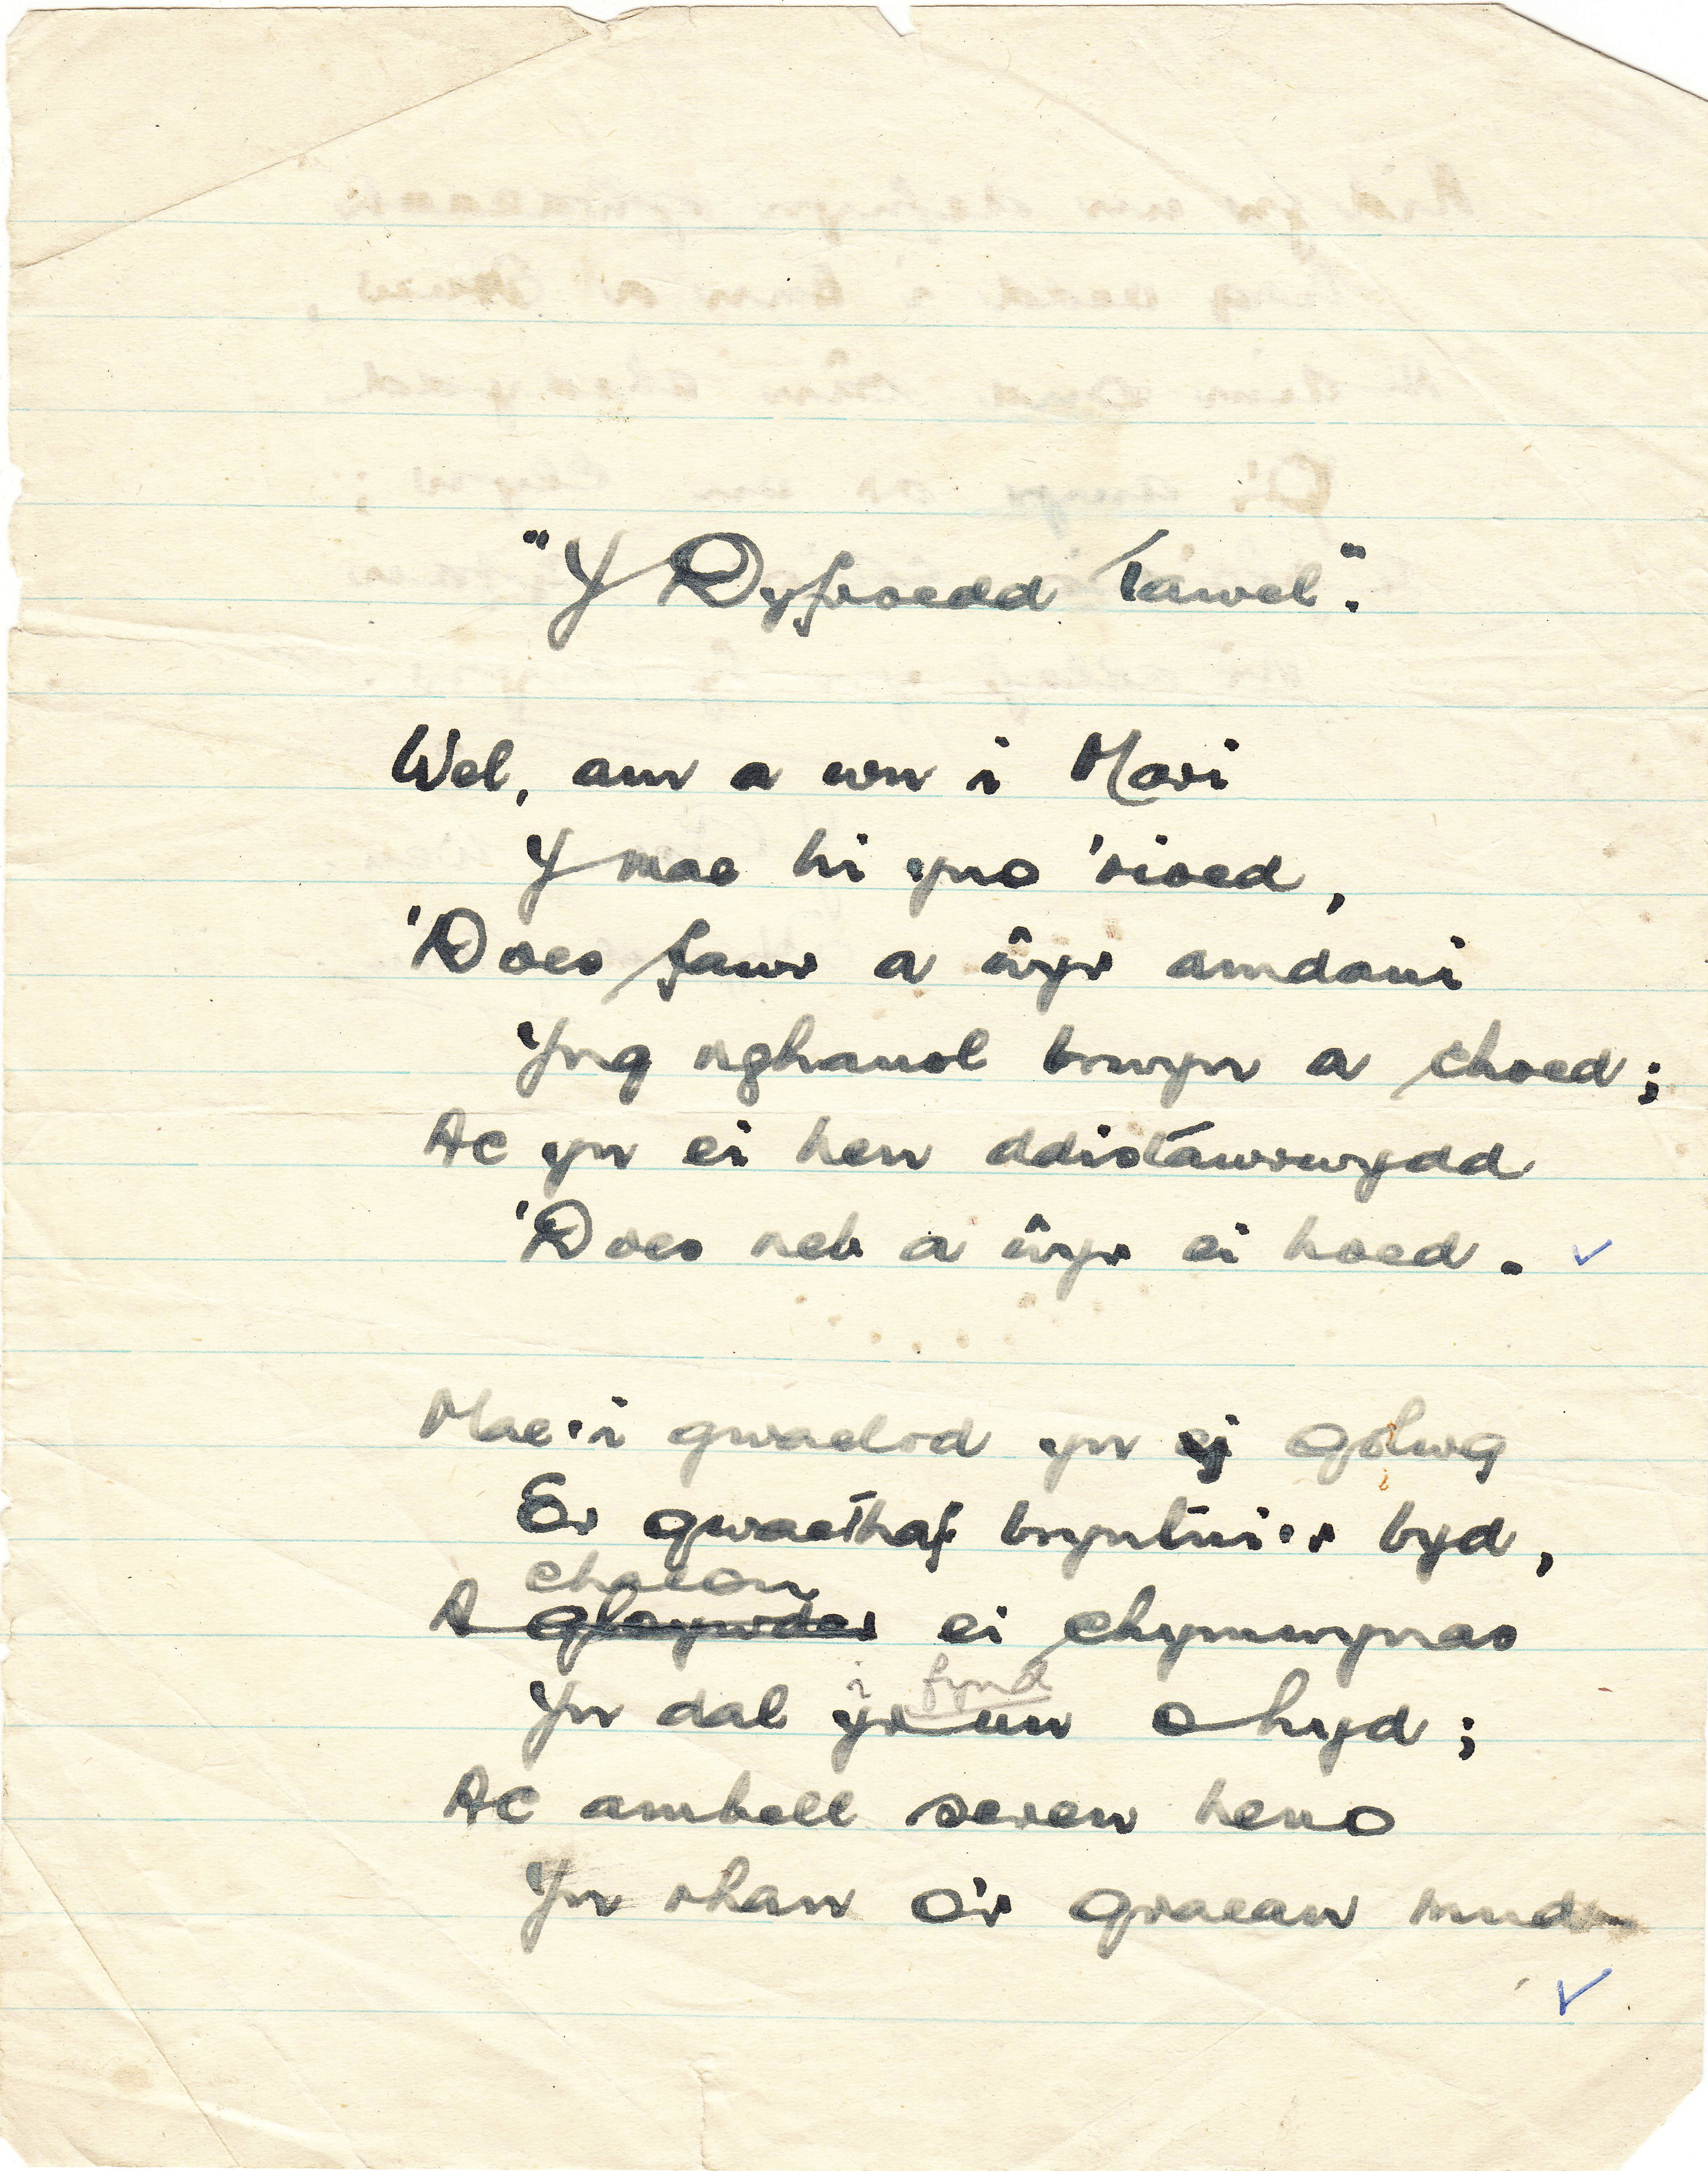 "Y Dyfroedd Tawel".
Wel, am a wn i Mari
Y mae hi yno 'rioed,
'Does fawr a ŵyr amdani
Yng nghanol brwyn a choed;
Ac yn ei hen ddistawrwydd
'Does neb a ŵyr ei hoed.
Mae'i gwaelod yn ei golwg
Er gwaethaf bryntni'r byd,
chalon
A gloywder ei chymwynas
i fynd
Yn dal yr un o hyd;
Ac ambell seren heno
Yn rhan o'r graean mud